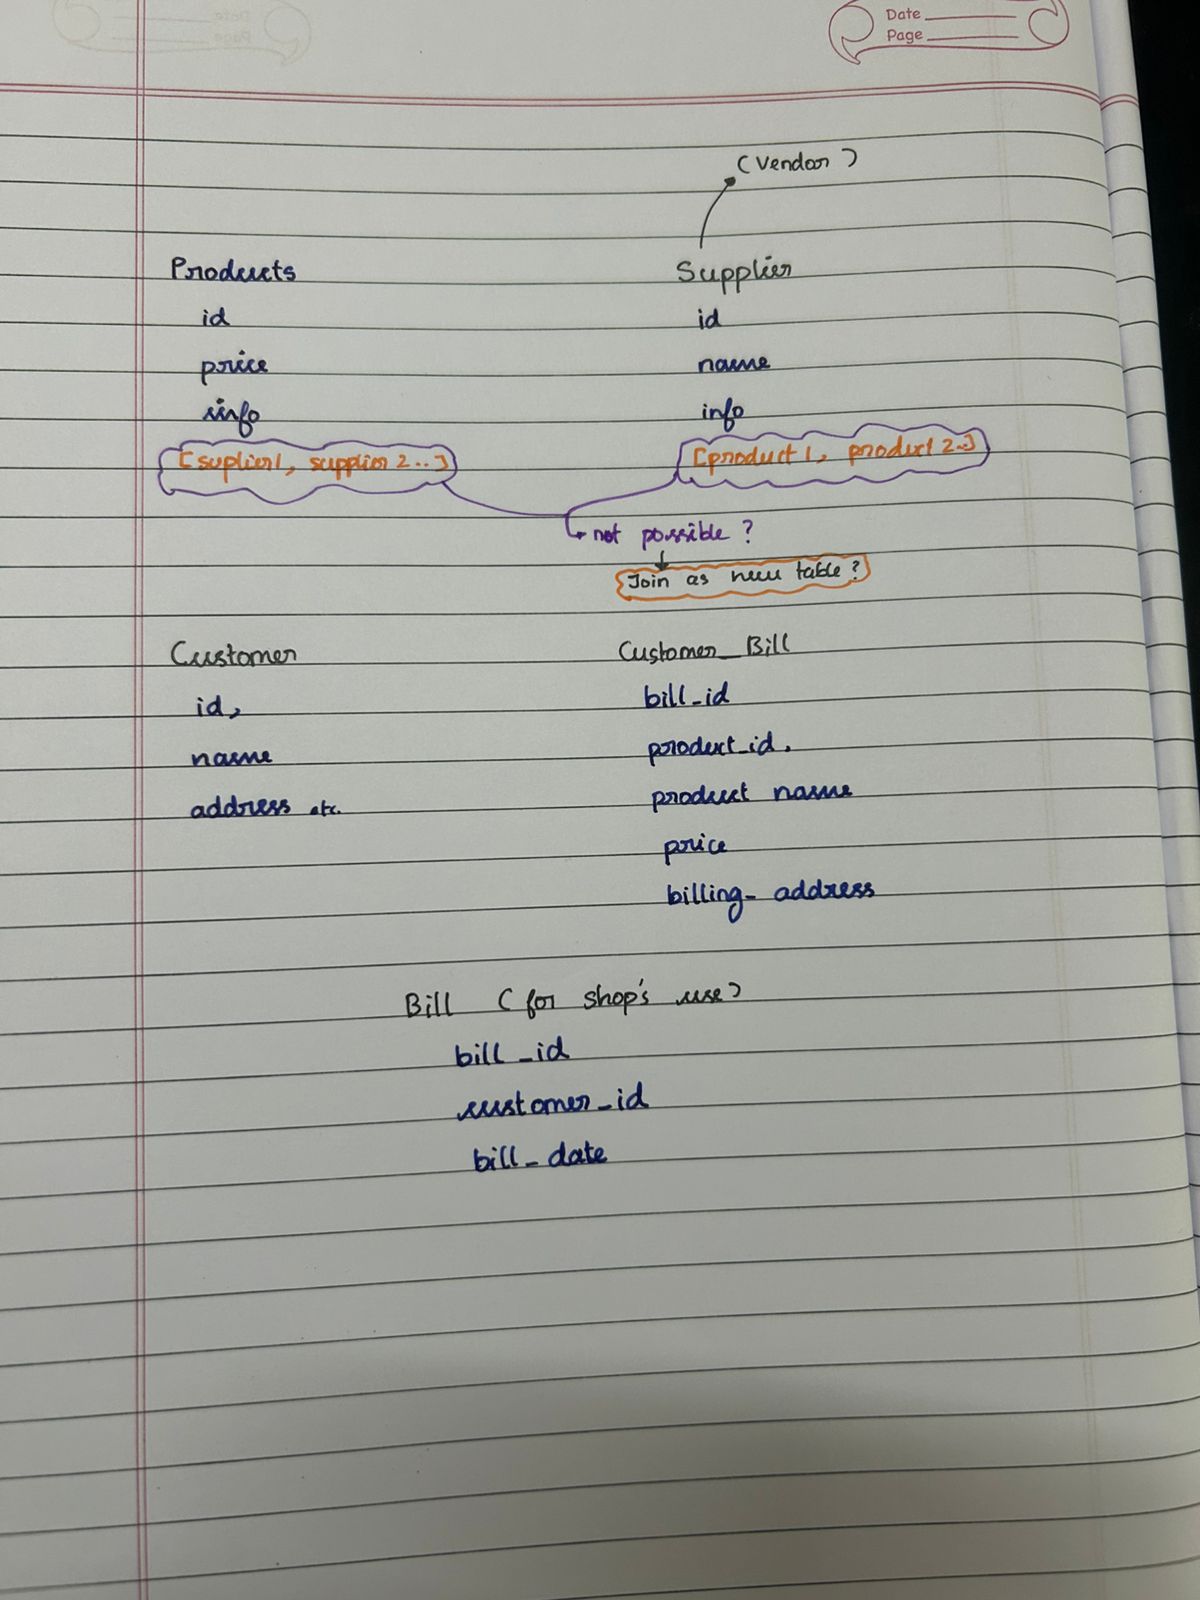 Date
Page
(Vendor)
Products
id
price
info
[suplier1, supplier 2..]
Supplier
id
name
info
[product 1, product 2..]
not possible?
Join as new table?
Customer
id,
name
address etc.
Customer_Bill
bill_id
product_id,
product name
price
billing_address
Bill (for shop's use)
bill_id
customer_id
bill_date